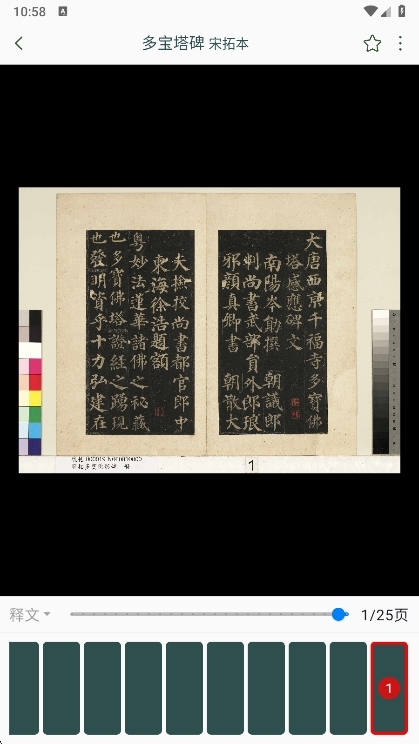 10:58
多宝塔碑 宋拓本
大唐西京千福寺多寶佛
塔感應碑文
南陽岑勛撰 朝議郎
判尚書武部員外郎琅
邪顏真卿書 朝散大
夫撿挍尚書都官郎中
東海徐浩題額
粵妙法蓮華諸佛之秘藏
也多寶佛塔證經之踴現
也發明資乎十力弘建在
1
释文
1/25页
1